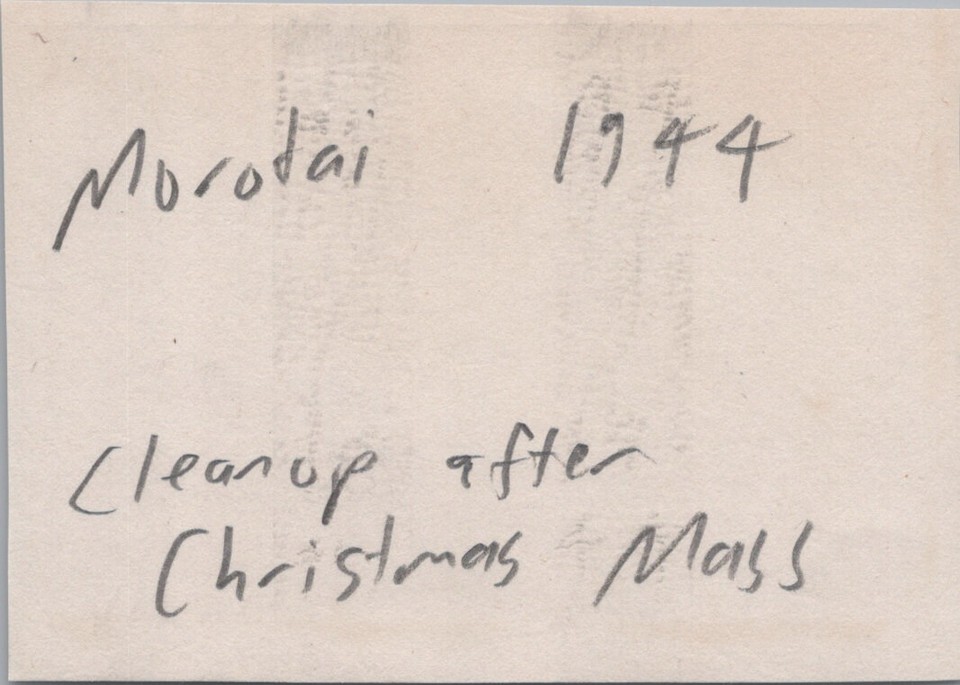 Morotai 1944
Cleanup after
Christmas Mass